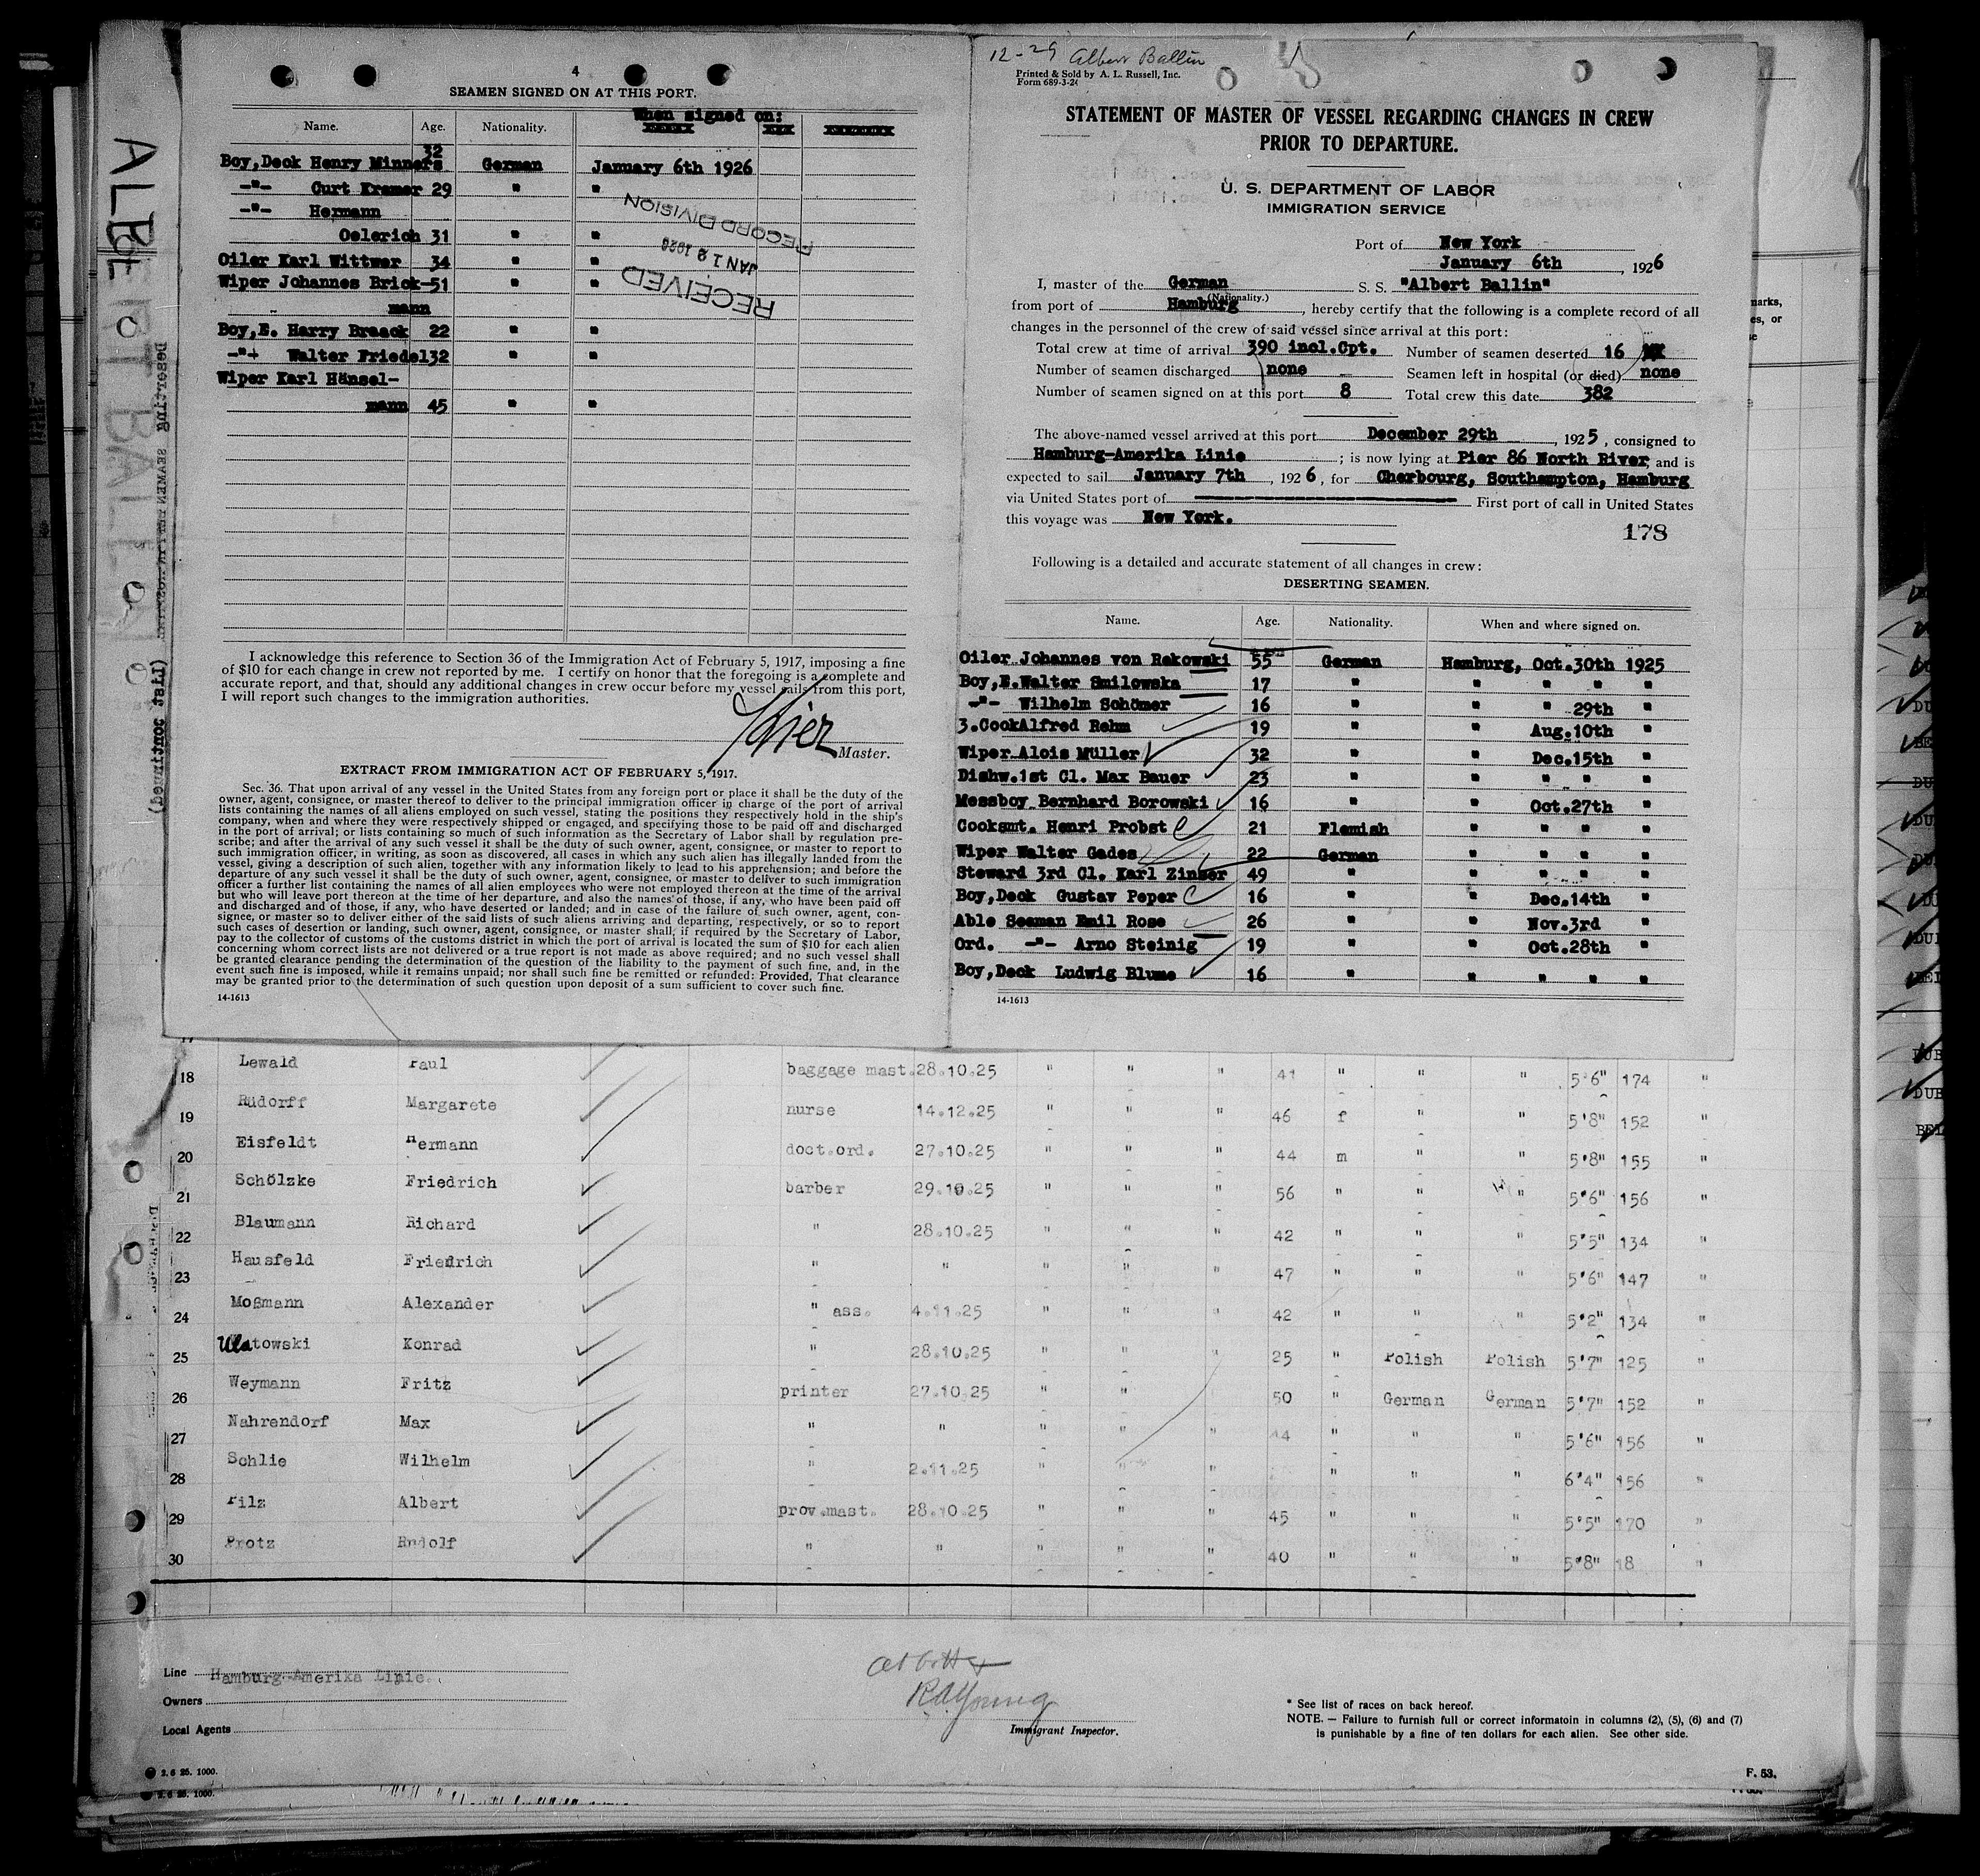 4
SEAMEN SIGNED ON AT THIS PORT.
When signed on:
Name. Age. Nationality.
32
Boy,Deck Henry Minners German January 6th 1926
-"- Curt Kramer 29 " "
-"- Hermann
Oelerich 31 " "
Oiler Karl Wittwer 34 " "
Wiper Johannes Brick-51 " "
mann
Boy,E. Harry Braack 22 " "
-"+ Walter Friedel32 " "
Wiper Karl Hänsel-
mann 45 " "
RECEIVED
JAN 12 1926
RECORD DIVISION
I acknowledge this reference to Section 36 of the Immigration Act of February 5, 1917, imposing a fine
of $10 for each change in crew not reported by me. I certify on honor that the foregoing is a complete and
accurate report, and that, should any additional changes in crew occur before my vessel sails from this port,
I will report such changes to the immigration authorities.
Master.
EXTRACT FROM IMMIGRATION ACT OF FEBRUARY 5, 1917.
Sec. 36. That upon arrival of any vessel in the United States from any foreign port or place it shall be the duty of the
owner, agent, consignee, or master thereof to deliver to the principal immigration officer in charge of the port of arrival
lists containing the names of all aliens employed on such vessel, stating the positions they respectively hold in the ship's
company, when and where they were respectively shipped or engaged, and specifying those to be paid off and discharged
in the port of arrival; or lists containing so much of such information as the Secretary of Labor shall by regulation pre-
scribe; and after the arrival of any such vessel it shall be the duty of such owner, agent, consignee, or master to report to
such immigration officer, in writing, as soon as discovered, all cases in which any such alien has illegally landed from the
vessel, giving a description of such alien, together with any information likely to lead to his apprehension; and before the
departure of any such vessel it shall be the duty of such owner, agent, consignee, or master to deliver to such immigration
officer a further list containing the names of all alien employees who were not employed thereon at the time of the arrival
but who will leave port thereon at the time of her departure, and also the names of those, if any, who have been paid off
and discharged and of those, if any, who have deserted or landed; and in case of the failure of such owner, agent, con-
signee, or master so to deliver either of the said lists of such aliens arriving and departing, respectively, or so to report
such cases of desertion or landing, such owner, agent, consignee, or master shall, if required by the Secretary of Labor,
pay to the collector of customs of the customs district in which the port of arrival is located the sum of $10 for each alien
concerning whom correct lists are not delivered or a true report is not made as above required; and no such vessel shall
be granted clearance pending the determination of the question of the liability to the payment of such fine, and, in the
event such fine is imposed, while it remains unpaid; nor shall such fine be remitted or refunded: Provided, That clearance
may be granted prior to the determination of such question upon deposit of a sum sufficient to cover such fine.
14-1613
12-29 Albert Ballin
Printed & Sold by A. L. Russell, Inc.
Form 689-3-24
STATEMENT OF MASTER OF VESSEL REGARDING CHANGES IN CREW
PRIOR TO DEPARTURE.
U. S. DEPARTMENT OF LABOR
IMMIGRATION SERVICE
Port of New York
January 6th, 1926
I, master of the German S. S. "Albert Ballin"
(Nationality.)
from port of Hamburg, hereby certify that the following is a complete record of all
changes in the personnel of the crew of said vessel since arrival at this port:
Total crew at time of arrival 390 incl.Cpt. Number of seamen deserted 16
Number of seamen discharged none Seamen left in hospital (or died) none
Number of seamen signed on at this port 8 Total crew this date 382
The above-named vessel arrived at this port December 29th, 1925, consigned to
Hamburg-Amerika Linie; is now lying at Pier 86 North River, and is
expected to sail January 7th, 1926, for Cherbourg, Southampton, Hamburg
via United States port of First port of call in United States
this voyage was New York.
178
Following is a detailed and accurate statement of all changes in crew:
DESERTING SEAMEN.
Name. Age. Nationality. When and where signed on.
Oiler Johannes von Rakowski 55 German Hamburg, Oct.30th 1925
Boy,E.Walter Smilowska 17 " " " " "
-"- Wilhelm Schömer 16 " " " 29th "
3.CookAlfred Rehm 19 " " Aug.10th "
Wiper Alois Müller 32 " " Dec.15th "
Dishw.1st Cl. Max Bauer 23 " " " " "
Messboy Bernhard Borowski 16 " " Oct.27th "
Cooksmt. Henri Probst 21 Flemish " " " "
Wiper Walter Gades 22 German " " " "
Steward 3rd Cl. Karl Zinser 49 " " " " "
Boy,Deck Gustav Peper 16 " " Dec.14th "
Able Seaman Emil Rose 26 " " Nov.3rd "
Ord. -"- Arno Steinig 19 " " Oct.28th "
Boy,Deck Ludwig Blume 16 " " " " "
14-1613
17
18 Lewald Paul baggage mast.28.10.25 " " " 41 " " " 5'6" 174 "
19 Rüdorff Margarete nurse 14.12.25 " " " 46 f " " 5'8" 152 "
20 Eisfeldt Hermann doct.ord. 27.10.25 " " " 44 m " " 5'8" 155 "
21 Schölzke Friedrich barber 29.10.25 " " " 56 " " " 5'6" 156 "
22 Blaumann Richard " 28.10.25 " " " 42 " " " 5'5" 134 "
23 Hausfeld Friedrich " " " " " 47 " " " 5'6" 147 "
24 Moßmann Alexander " ass. 4.11.25 " " " 42 " " " 5'2" 134 "
25 Ulatowski Konrad " 28.10.25 " " " 25 " Polish Polish 5'7" 125 "
26 Weymann Fritz printer 27.10.25 " " 50 " German German 5'7" 152 "
27 Nahrendorf Max " " " " " 44 " " " 5'6" 156 "
28 Schlie Wilhelm " 2.11.25 " " " " " " 6'4" 156 "
29 Pilz Albert prov.mast. 28.10.25 " " " 45 " " " 5'5" 170 "
30 Protz Rudolf " " " " " 40 " " " 5'8" 18 "
Line Hamburg-Amerika Linie.
Owners
Local Agents
R A Young
Immigrant Inspector.
* See list of races on back hereof.
NOTE. — Failure to furnish full or correct informatoin in columns (2), (5), (6) and (7)
is punishable by a fine of ten dollars for each alien. See other side.
2. 6 25. 1000.
F. 53.
2. 6 25. 1000.
ALBERT BALLIN